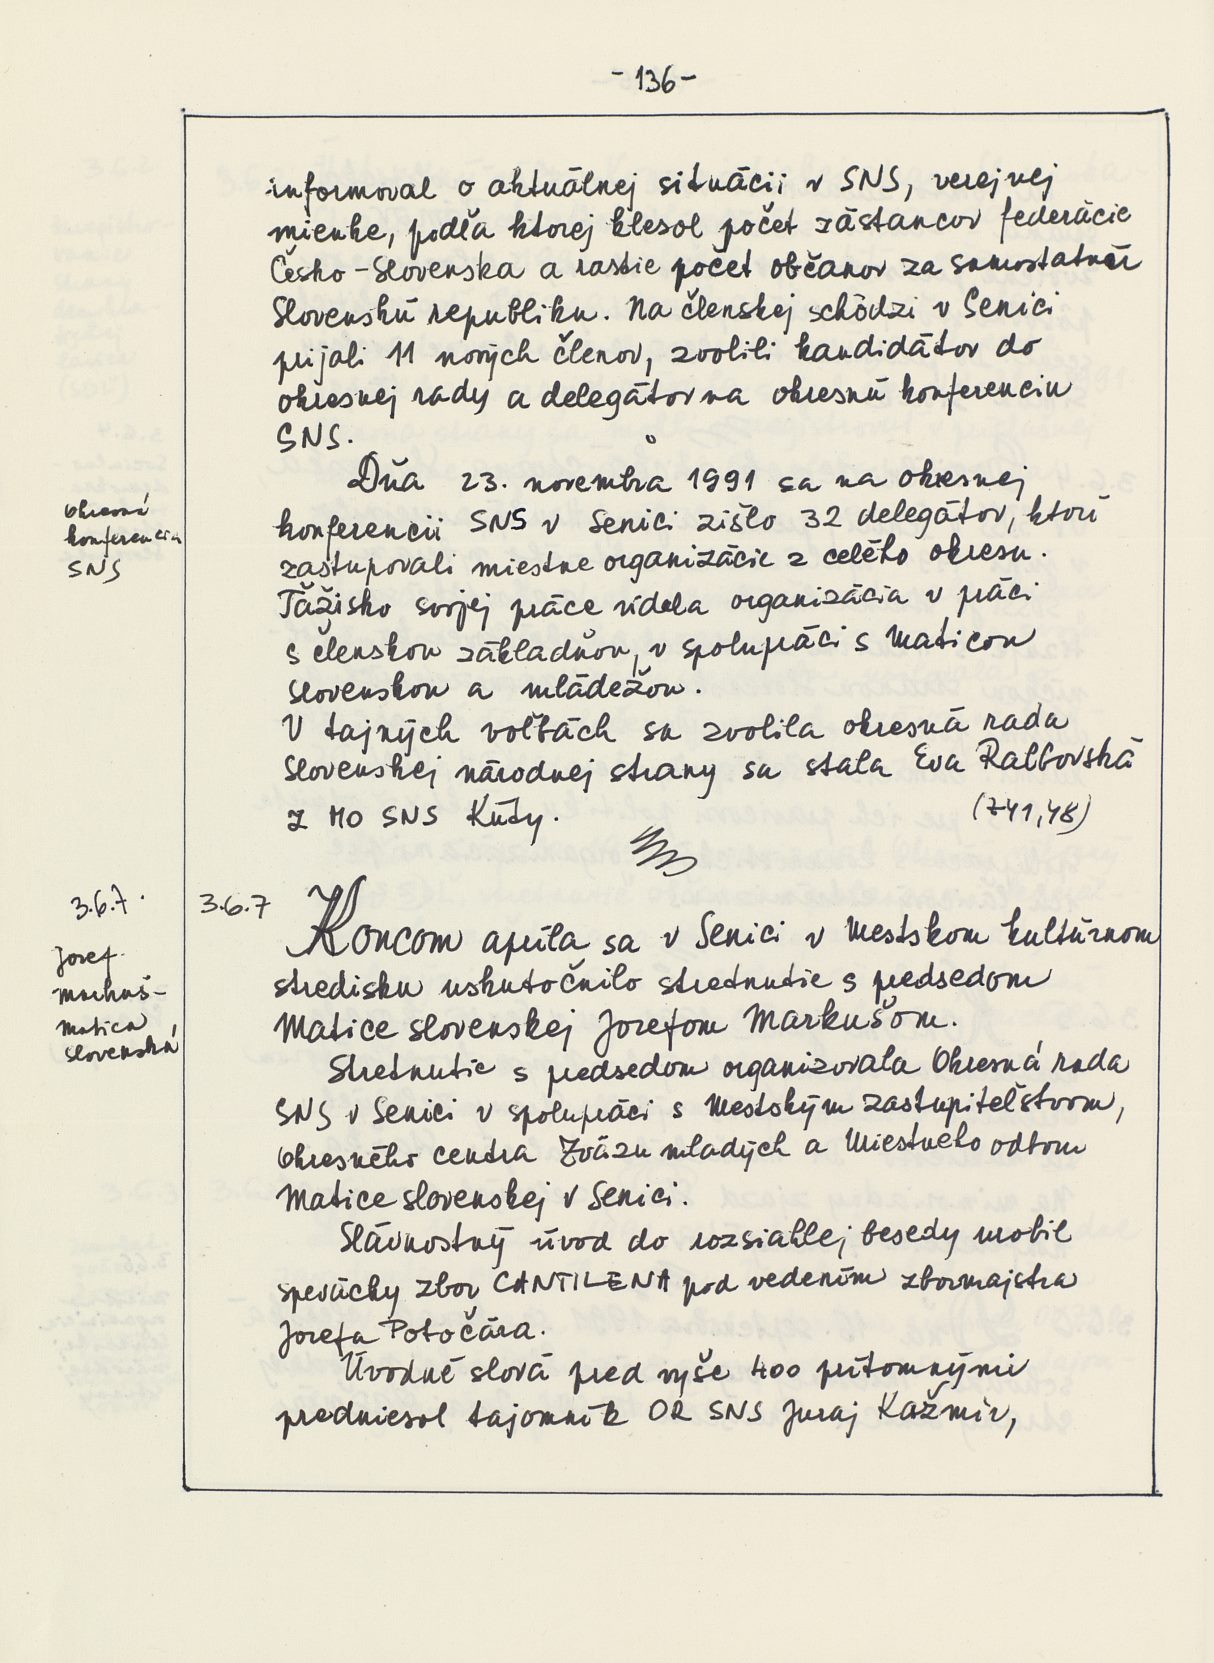 - 136 -
informoval o aktuálnej situácii v SNS, verejnej
mienke, podľa ktorej klesol počet zástancov federácie
Česko-Slovenska a rastie počet občanov za samostatnú
Slovenskú republiku. Na členskej schôdzi v Senici
prijali 11 nových členov, zvolili kandidátov do
okresnej rady a delegátov na okresnú konferenciu
SNS.
Okresná
konferencia
SNS
Dňa 23. novembra 1991 sa na okresnej
konferencii SNS v Senici zišlo 32 delegátov, ktorí
zastupovali miestne organizácie z celého okresu.
Ťažisko svojej práce videla organizácia v práci
s členskou základňou, v spolupráci s Maticou
slovenskou a mládežou.
V tajných voľbách sa zvolila okresná rada
Slovenskej národnej strany sa stala Eva Ralbovská
z MO SNS Kúty.
(741,48)
3.6.7.
Jozef
Markuš-
Matica
slovenská
3.6.7 Koncom apríla sa v Senici v Mestskom kultúrnom
stredisku uskutočnilo stretnutie s predsedom
Matice slovenskej Jozefom Markušom.
Stretnutie s predsedom organizovala Okresná rada
SNS v Senici v spolupráci s Mestským zastupiteľstvom,
Okresného centra Zväzu mladých a Miestneho odboru
Matice slovenskej v Senici.
Slávnostný úvod do rozsiahlej besedy urobil
spevácky zbor CANTILENA pod vedením zbormajstra
Jozefa Potočára.
Úvodné slová pred vyše 400 prítomnými
predniesol tajomník OR SNS Juraj Kažmír,